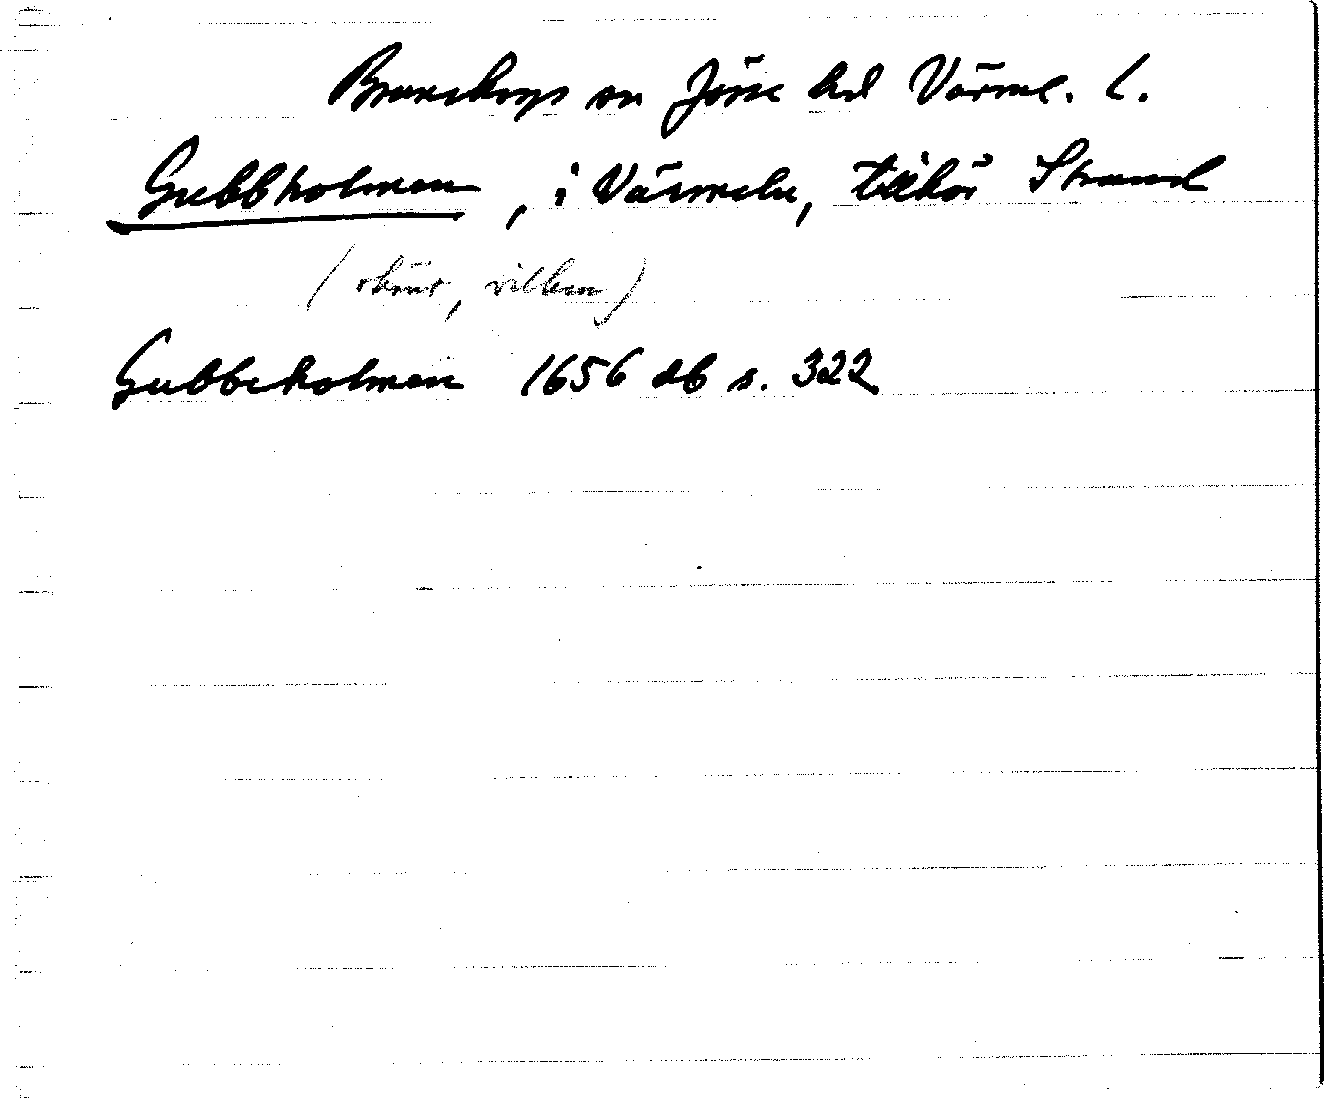 Brunskogs sn Jösse hd Värml. l.
Gubbholmen, i Värmeln, tillhör Strand
(okänt, vilken)
Gubbeholmen 1656 db s. 322